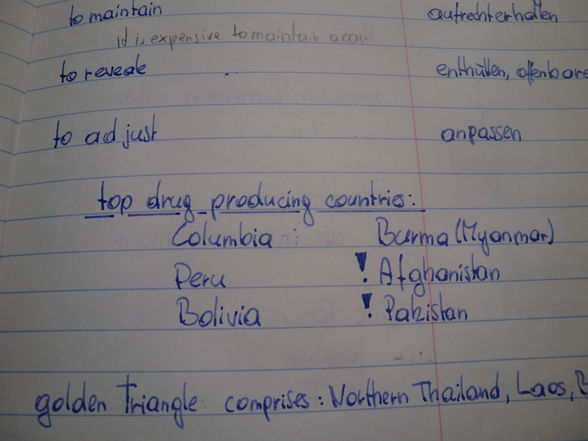 to maintain aufrechterhalten
it is expensive to maintain a car
to reveale enthüllen, offenbare
to adjust anpassen
top drug producing countries:
Columbia : Burma (Myanmar)
Peru ! Afghanistan
Bolivia ! Pakistan
golden Triangle comprises: Northern Thailand, Laos, B